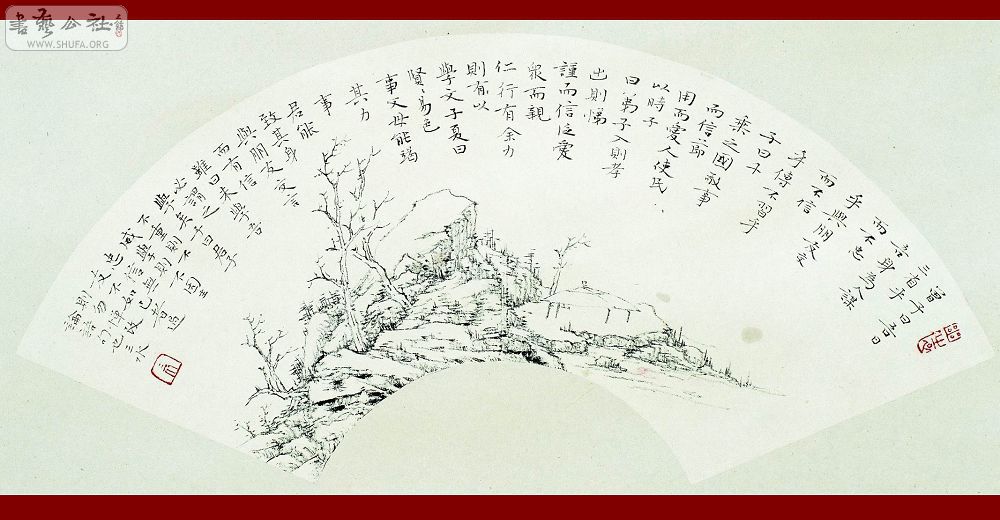 書藝公社
WWW.SHUFA.ORG
曾子曰吾日
三省乎
吾身為人謀
而不忠
乎與朋友交
而不信
乎傳不習乎
子曰千
乘之國敬事
而信節
用而愛人使民
以時子
曰弟子入則孝
出則悌
謹而信泛愛
衆而親
仁行有余力
則有以
學文子夏曰
賢々易色
事父母能竭
其力
事
君能
致其身
與朋友交言
而有信
雖曰未學吾
必謂之
學矣子曰君子
不重則不
威學則不固主
忠信無
友不如己者過
則勿憚改
論語句也